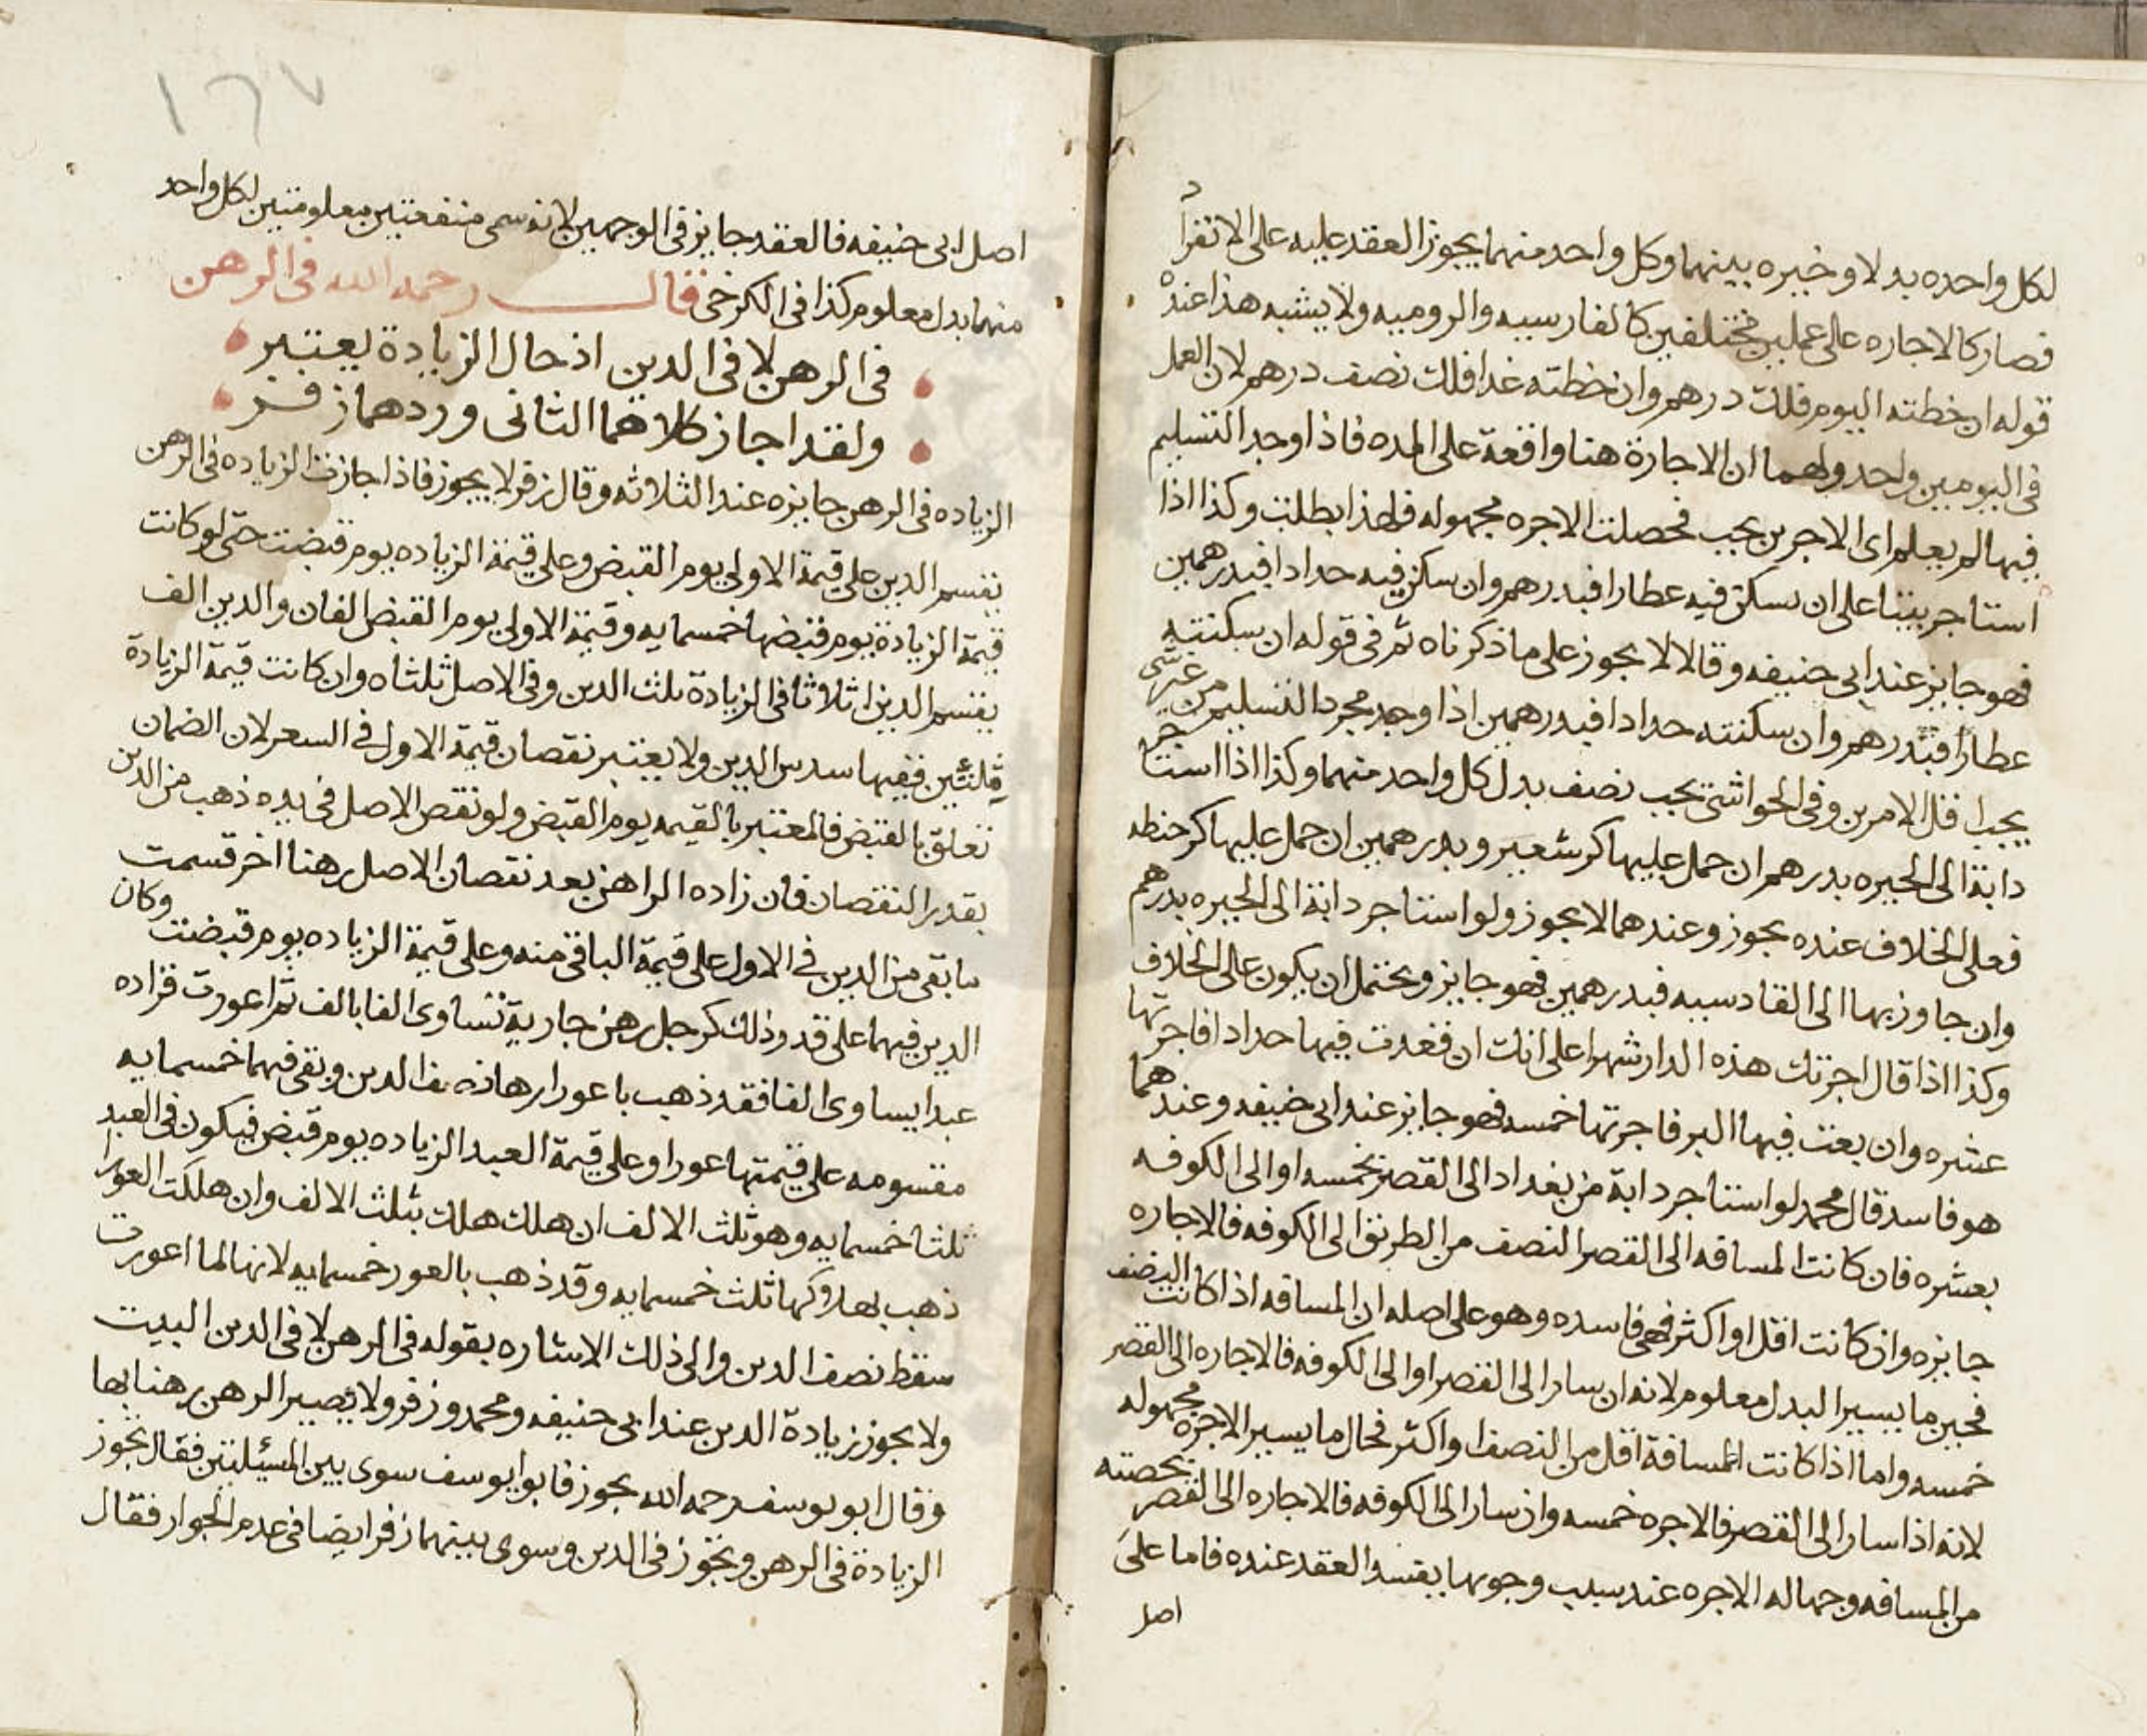 لكل واحده بدلا وخيره بينهما وكل واحد منهما يجوز العقد عليه على الانفراد
فصار كالاجاره على عملين مختلفين كالفارسيه والروميه ولا يشبه هذا عنده
قوله ان خطته اليوم فلك درهم وان خطته غدا فلك نصف درهم لان العمل
في اليومين واحد ولهما ان الاجارة هنا واقعة على المده فاذا وجد التسليم
فيها لم يعلم اى الاجرين يجب فحصلت الاجره مجهوله فلهذا بطلت وكذا اذا
استاجر بيتا على ان سكن فيه عطارا فبدرهم وان سكن فيه حدادا فبدرهمين
فهو جايز عند ابى حنيفه وقالا لا يجوز على ما ذكرناه ثم فى قوله ان سكنته
عطارا فبدرهم وان سكنته حدادا فبدرهمين اذا وجد مجرد التسليم من غير شى
يجب اقل الامرين وفى الحواشى يجب نصف بدل كل واحد منهما وكذا اذا استاجر
دابة الى الحيره بدرهم ان حمل عليها كر شعير وبدرهمين ان حمل عليها كر حنطه
فعلى الخلاف عنده يجوز وعندهما لا يجوز ولو استاجر دابة الى الحيره بدرهم
وان جاوز بها الى القادسيه فبدرهمين فهو جايز ويحتمل ان يكون على الخلاف
وكذا اذا قال اجرتك هذه الدار شهرا على انك ان قعدت فيها حدادا فاجرتها
عشره وان بعت فيها البر فاجرتها خمسه فهو جايز عند ابى حنيفه وعندهما
هو فاسد قال محمد لو استاجر دابة من بغداد الى القصر بخمسه او الى الكوفه
بعشره فان كانت المسافه الى القصر النصف من الطريق الى الكوفه فالاجاره
جايزه وان كانت اقل او اكثر فهى فاسده وهو على اصله ان المسافه اذا كانت النصف
فحين ما يسير البدل معلوم لانه ان سار الى القصر او الى الكوفه فالاجاره الى القصر
خمسه واما اذا كانت المسافة اقل من النصف او اكثر فحال ما يسير الاجره مجهوله
لانه اذا سار الى القصر فالاجره خمسه وان سار الى الكوفه فالاجاره الى القصر بحصته
من المسافه وجهاله الاجره عند سبب وجوبها يفسد العقد عنده فاما على
اصل
١٦٧
اصل ابى حنيفه فالعقد جايز فى الوجهين لانه سمى منفعتين معلومتين لكل واحد
منهما بدل معلوم كذا فى الكرخى قال رحمه الله فى الرهن
فى الرهن لا فى الدين اذ حال الزيادة يعتبر
ولقد اجاز كلاهما الثانى وردهما زفر
الزياده فى الرهن جايزه عند الثلاثه وقال زفر لا يجوز فاذا جازت الزياده فى الرهن
يقسم الدين على قيمة الاولى يوم القبض وعلى قيمة الزياده يوم قبضت حتى لو كانت
قيمة الزيادة يوم قبضها خمسمايه وقيمة الاولى يوم القبض الفان والدين الف
يقسم الدين اثلاثا فى الزيادة ثلث الدين وفى الاصل ثلثاه وان كانت قيمة الزيادة
ففيها سدس الدين ولا يعتبر نقصان قيمة الاول فى السعر لان الضمان
تعلق بالقبض فالمعتبر بالقيمه يوم القبض ولو نقص الاصل فى يده ذهب من الدين
بقدر النقصان فان زاده الراهن بعد نقصان الاصل رهنا اخر قسمت
ما بقى من الدين فى الاول على قيمة الباقى منه وعلى قيمة الزياده يوم قبضت وكان
الدين فيهما على قد وذلك كرجل رهن جارية تساوى الفا بالف ثم اعورت فزاده
عبدا يساوى الفا فقد ذهب باعورارها نصف الدين وبقى فيهما خمسمايه
مقسومه على قيمتها عورا وعلى قيمة العبد الزياده يوم قبض فيكون فى العبد
ثلثا خمسمايه وهو ثلث الالف ان هلك هلك بثلث الالف وان هلكت العورا
ذهب بهلاكها ثلث خمسمايه وقد ذهب بالعور خمسمايه لانها لما اعورت
سقط نصف الدين والى ذلك الاشاره بقوله فى الرهن لا فى الدين البيت
ولا يجوز زيادة الدين عند ابى حنيفه ومحمد وزفر ولا يصير الرهن رهنا بها
وقال ابو يوسف رحمه الله يجوز فابو يوسف سوى بين المسئلتين فقال يجوز
الزيادة فى الرهن ويجوز فى الدين وسوى بينهما زفر ايضا فى عدم الجواز فقال